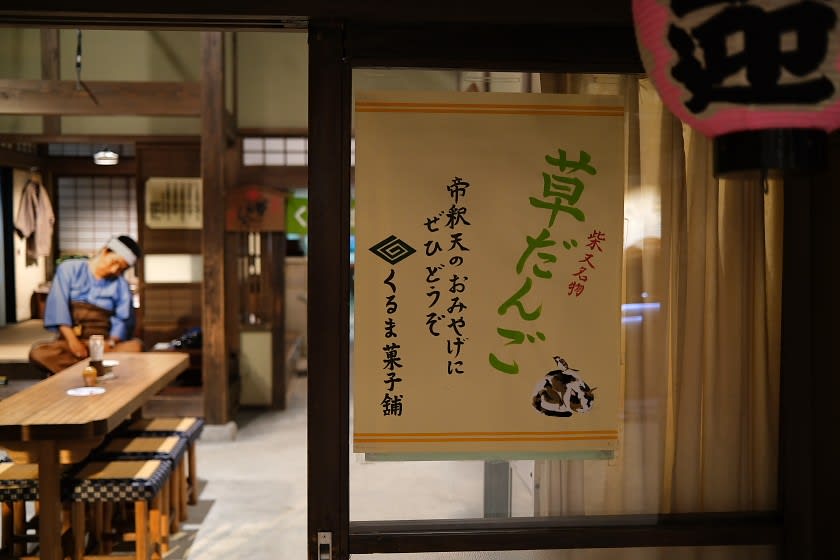 柴又名物
草だんご
帝釈天のおみやげに
ぜひどうぞ
くるま菓子舗
迎